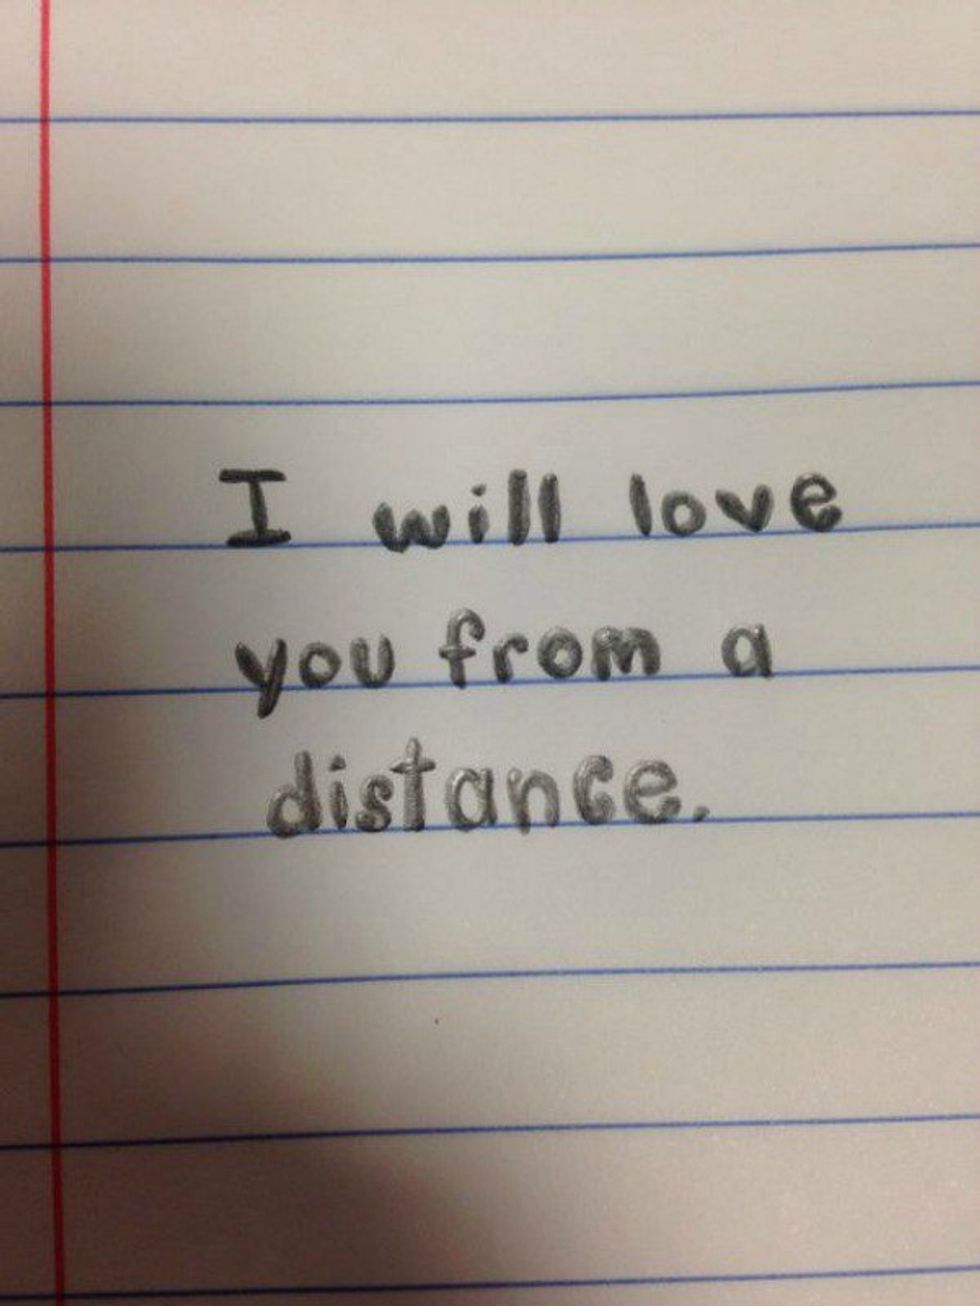 I will love
you from a
distance.